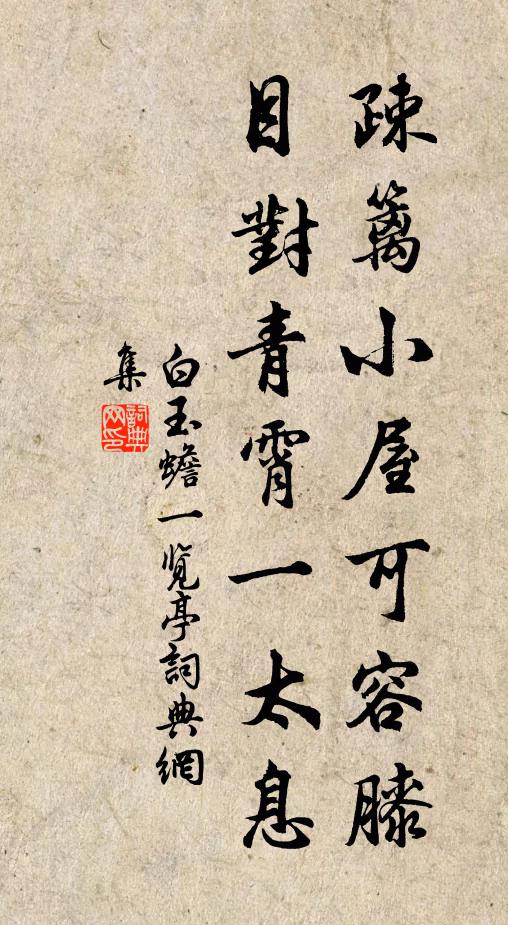 疎籬小屋可容膝
目對青霄一太息
白玉蟾一覽亭詞典網
集
詞典
网印